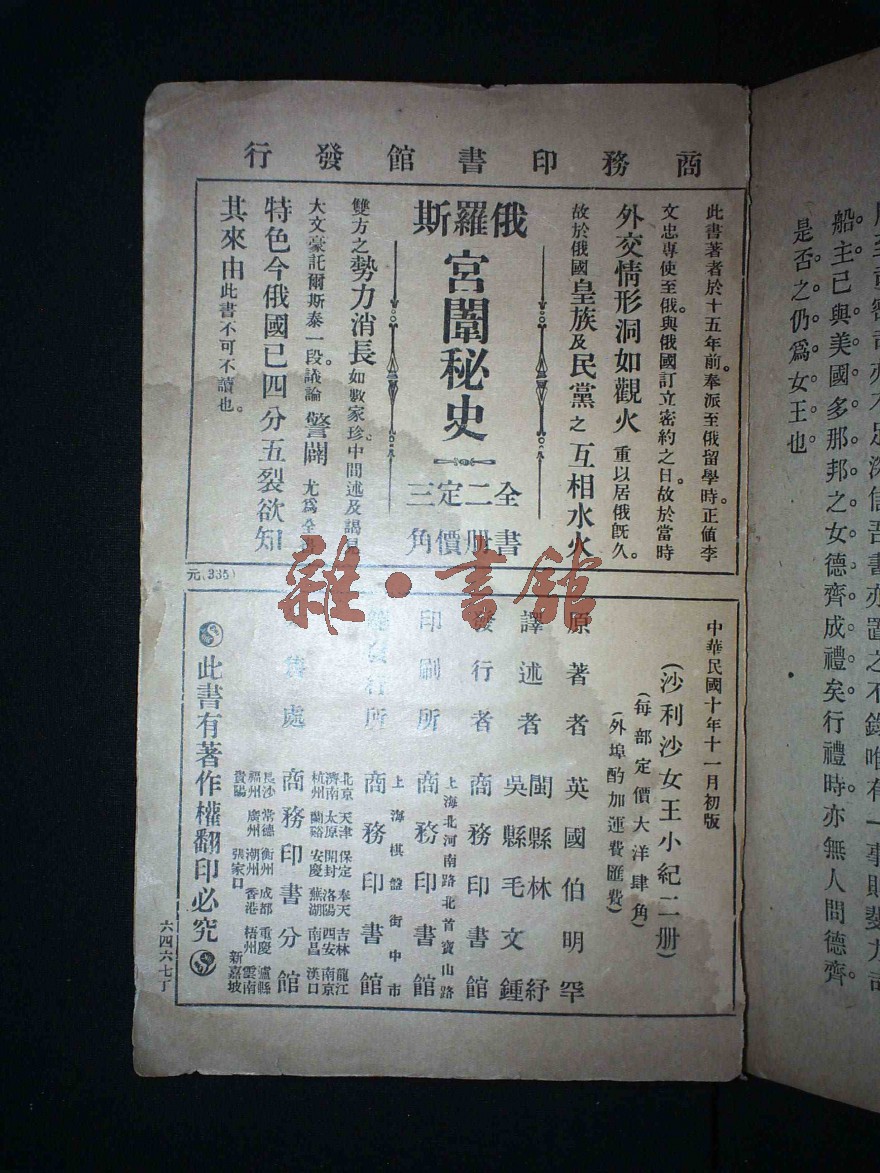 商務印書館發行
此書著者於十五年前。奉派至俄留學時。正値李
文忠專使至俄。與俄國訂立密約之日。故於當時
外交情形洞如觀火 重以居俄旣久。
故於俄國皇族及民黨之互相水火
俄羅斯
宮闈秘史
全書二册定價三角
雙方之勢力消長 如數家珍。中間述及謁見
大文豪託爾斯泰一段。議論 警闢 尤爲全
特色今俄國已四分五裂欲知
其來由 此書不可不讀也。
元(335)
中華民國十年十一月初版
(沙利沙女王小紀二册)
(每部定價大洋肆角)
(外埠酌加運費匯費)
原著者 英國伯明罕
譯述者 閩縣林紓
吳縣毛文鍾
發行者 商務印書館
上海北河南路北首寶山路
印刷所 商務印書館
上海棋盤街中市
總發行所 商務印書館
北京 天津 保定 奉天 吉林 龍江
濟南 太原 開封 洛陽 西安 南京
杭州 蘭谿 安慶 蕪湖 南昌 漢口
售處 商務印書分館
長沙 常德 衡州 成都 重慶 瀘縣
福州 廣州 潮州 香港 梧州 雲南
貴陽 張家口 新嘉坡
此書有著作權翻印必究
六四六七丁
雜·書館
船主已與美國多那邦之女德齊成禮矣。行禮時。亦無人問德齊。
是否之仍爲女王也